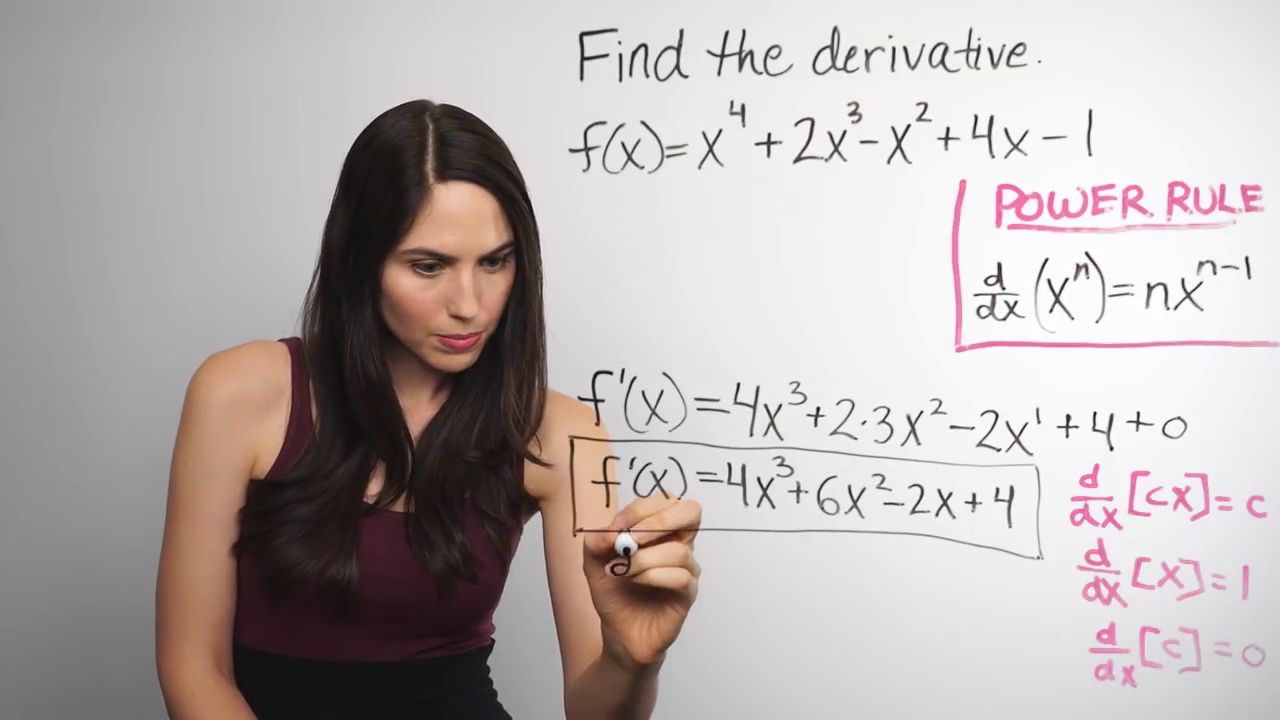 Find the derivative.
f(x)=x⁴+2x³-x²+4x-1
POWER RULE
d/dx (xⁿ)=nxⁿ⁻¹
f'(x)=4x³+2·3x²-2x¹+4+0
f'(x)=4x³+6x²-2x+4
d/dx [cx]=c
d/dx [x]=1
d/dx [c]=0
d